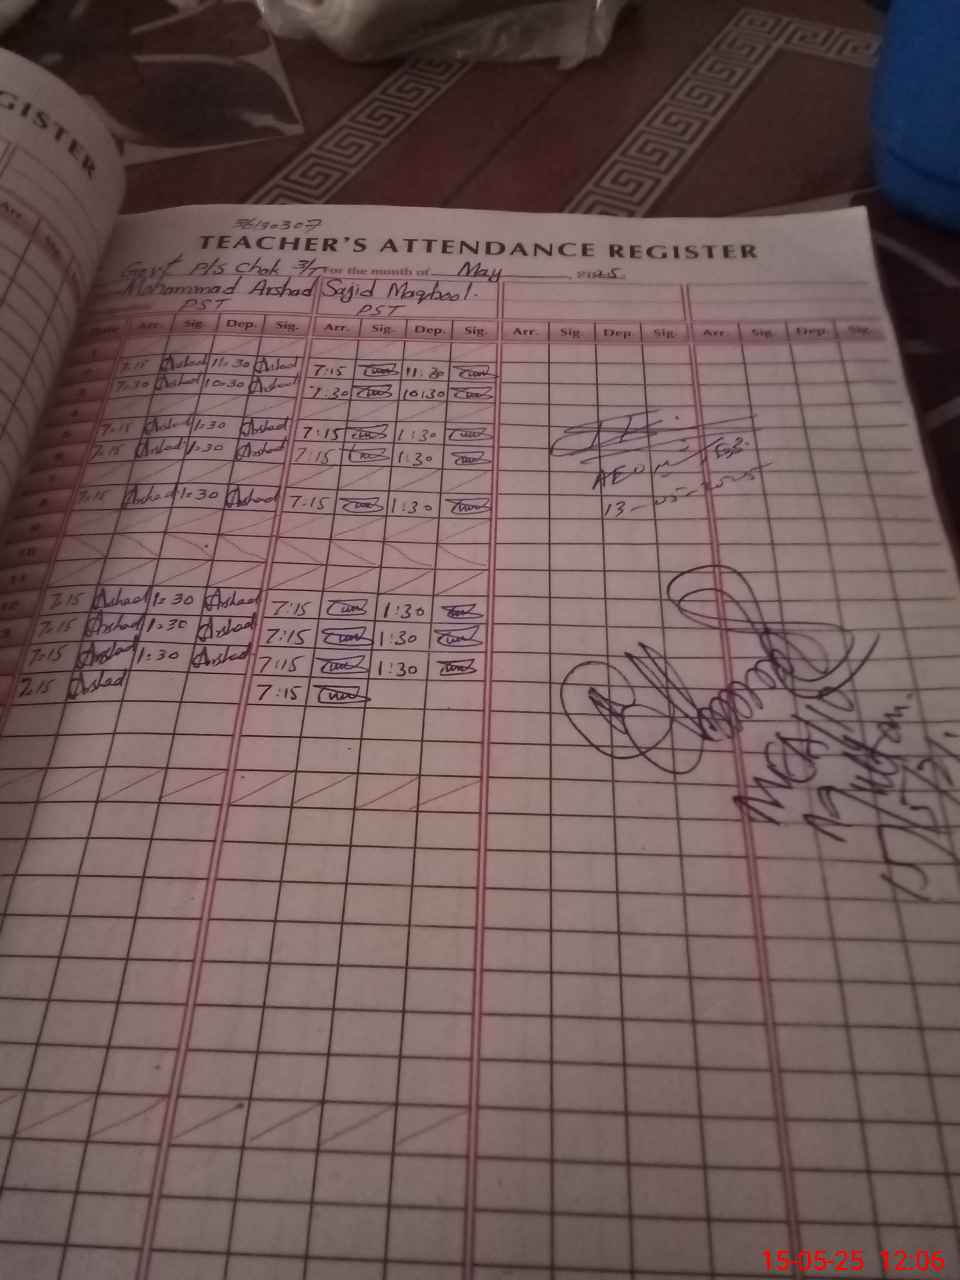 GISTER
Arr.
36130307
TEACHER'S ATTENDANCE REGISTER
Govt P/S Chak 3/T For the month of May, 2025.
Mohammad Arshad Sajid Maqbool.
PST PST
Date Arr. Sig. Dep. Sig. Arr. Sig. Dep. Sig. Arr. Sig. Dep. Sig. Arr. Sig. Dep. Sig.
1
2 7:15 Arshad 11:30 Arshad 7:15 11:30
3 7:30 Arshad 10:30 Arshad 7:30 10:30
4
5 7:15 Arshad 1:30 Arshad 7:15 1:30
6 7:15 Arshad 1:30 Arshad 7:15 1:30
7
8 7:15 Arshad 1:30 Arshad 7:15 1:30
9
10
11
12 7:15 Arshad 1:30 Arshad 7:15 1:30
7:15 Arshad 1:30 Arshad 7:15 1:30
7:15 Arshad 1:30 Arshad 7:15 1:30
7:15 Arshad 7:15
AEO
13-05-2025
MEA
15/5/
15-05-25 12:06